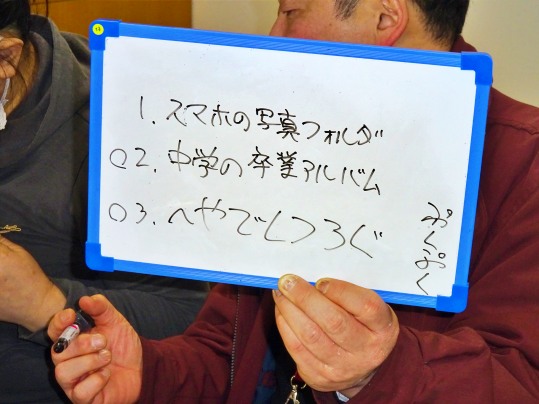 1. スマホの写真フォルダ
○2. 中学の卒業アルバム
○3. へやでくつろぐ
ぷくぷく